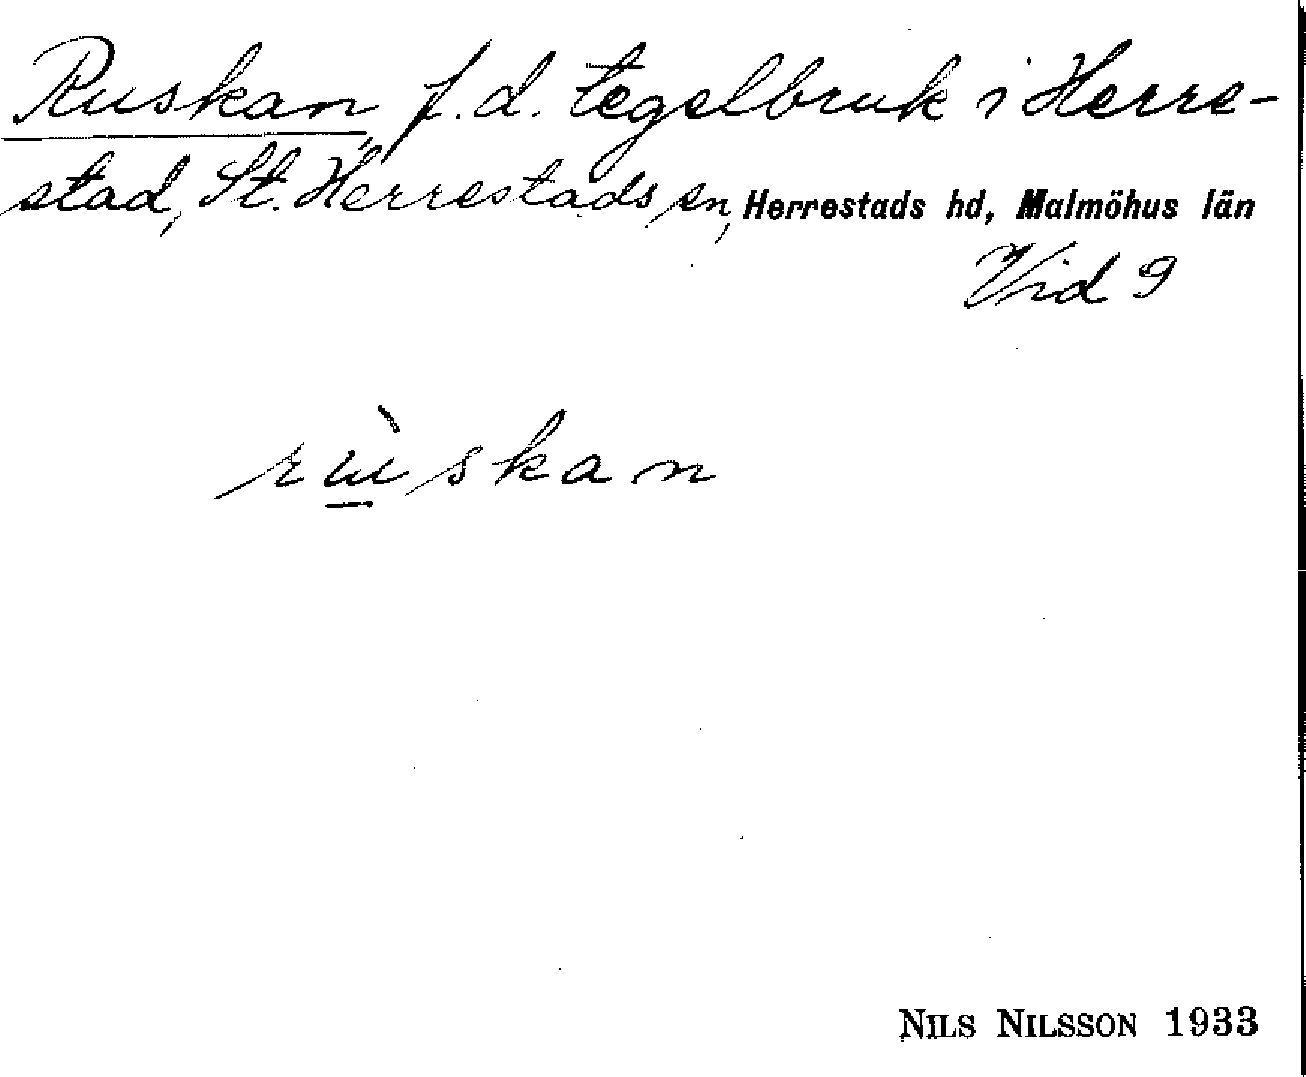 Ruskan, f.d. tegelbruk i Herre-
stad, St. Herrestads sn, Herrestads hd, Malmöhus län
Vid 9
ɯ̀skan
NILS NILSSON 1933